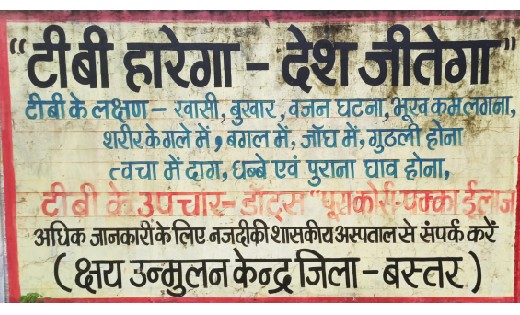 "टीबी हारेगा - देश जीतेगा"
टीबी के लक्षण - खासी, बुखार, वजन घटना, भूख कम लगना,
शरीर के गले में, बगल में, जाँघ में, गुठली होना
त्वचा में दाग, धब्बे एवं पुराना घाव होना,
टीबी के उपचार- डॉट्स "पूरा कोर्स-पक्का ईलाज
अधिक जानकारी के लिए नजदीकी शासकीय अस्पताल से संपर्क करें
(क्षय उन्मुलन केन्द्र जिला - बस्तर)